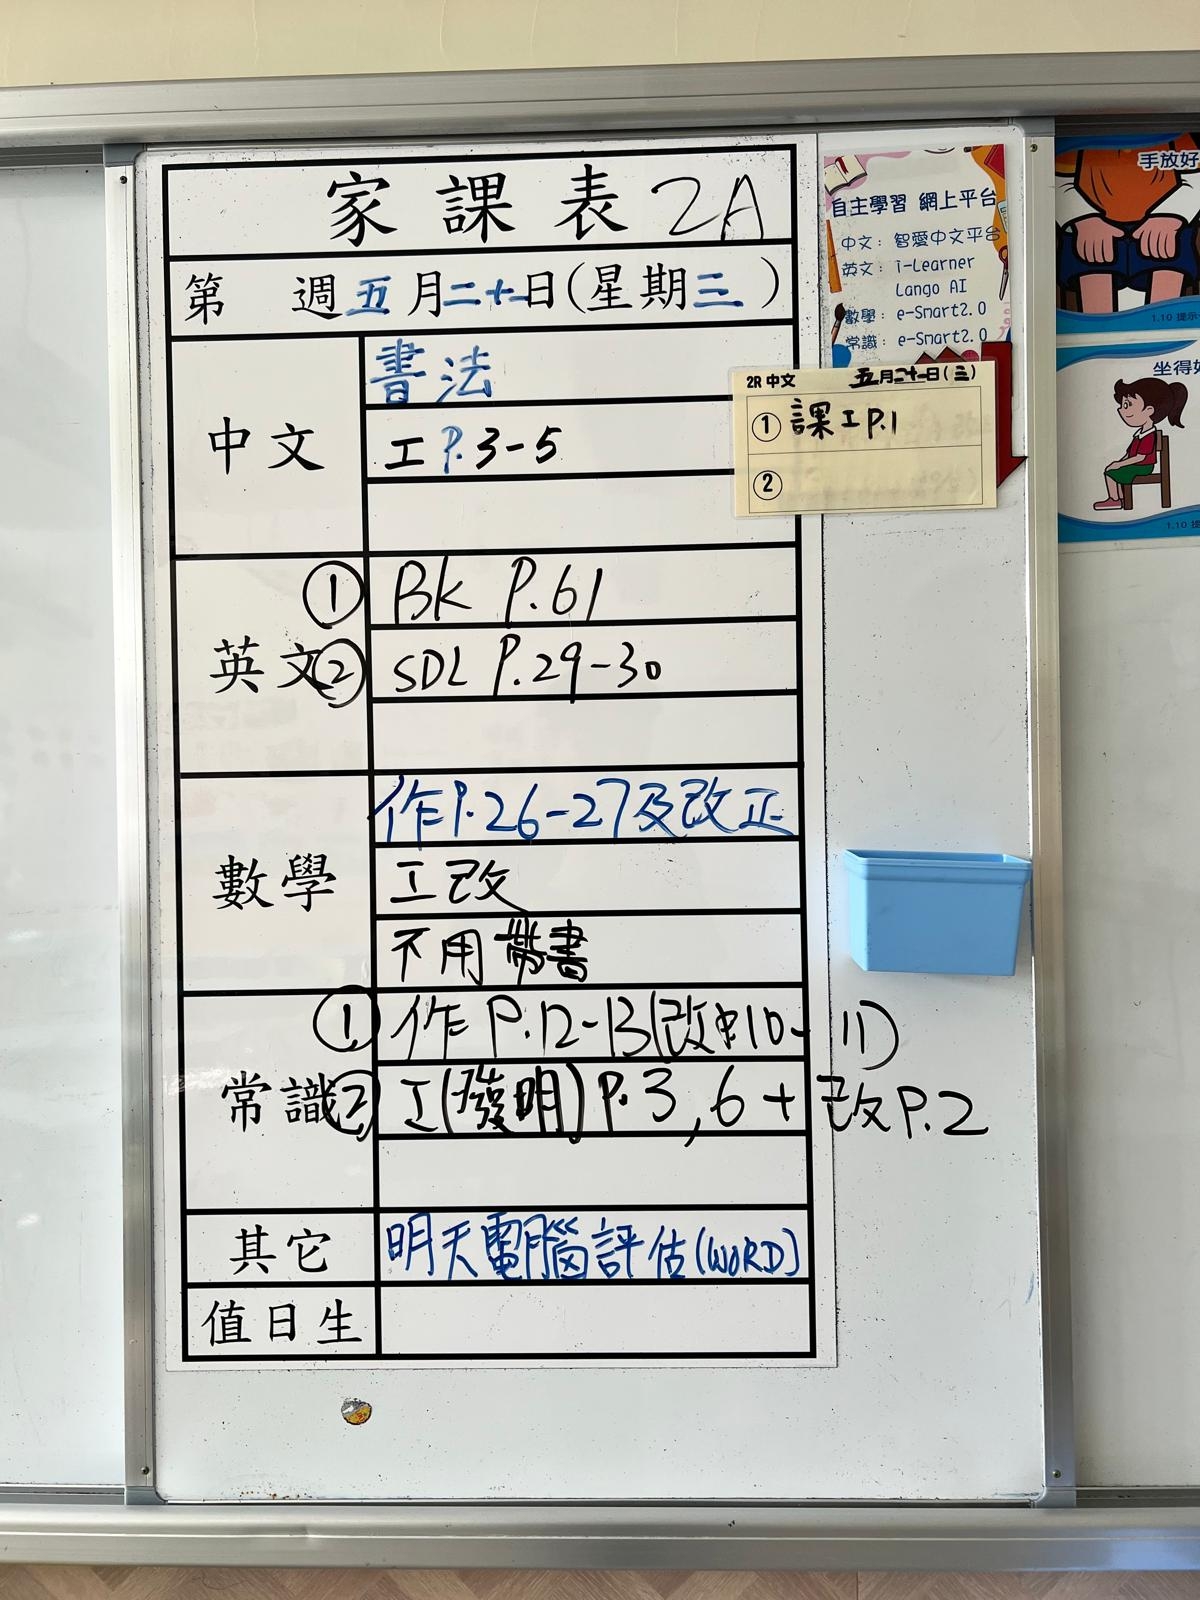 家課表 2A
第 週 五月二十一日(星期三)
中文
書法
工 P.3-5
英文
① BK P.61
② SDL P.29-30
數學
作P.26-27及改正
工改
不用帶書
常識
① 作 P.12-13(改中10-11)
② 工(發明) P.3,6 + 改P.2
其它
明天電腦評估(WORD)
值日生
自主學習 網上平台
中文：智愛中文平台
英文：i-Learner
Lango AI
數學：e-Smart2.0
常識：e-Smart2.0
2R 中文 五月二十一日(三)
① 課工P.1
②
手放好
1.10 提示
坐得好
1.10 提